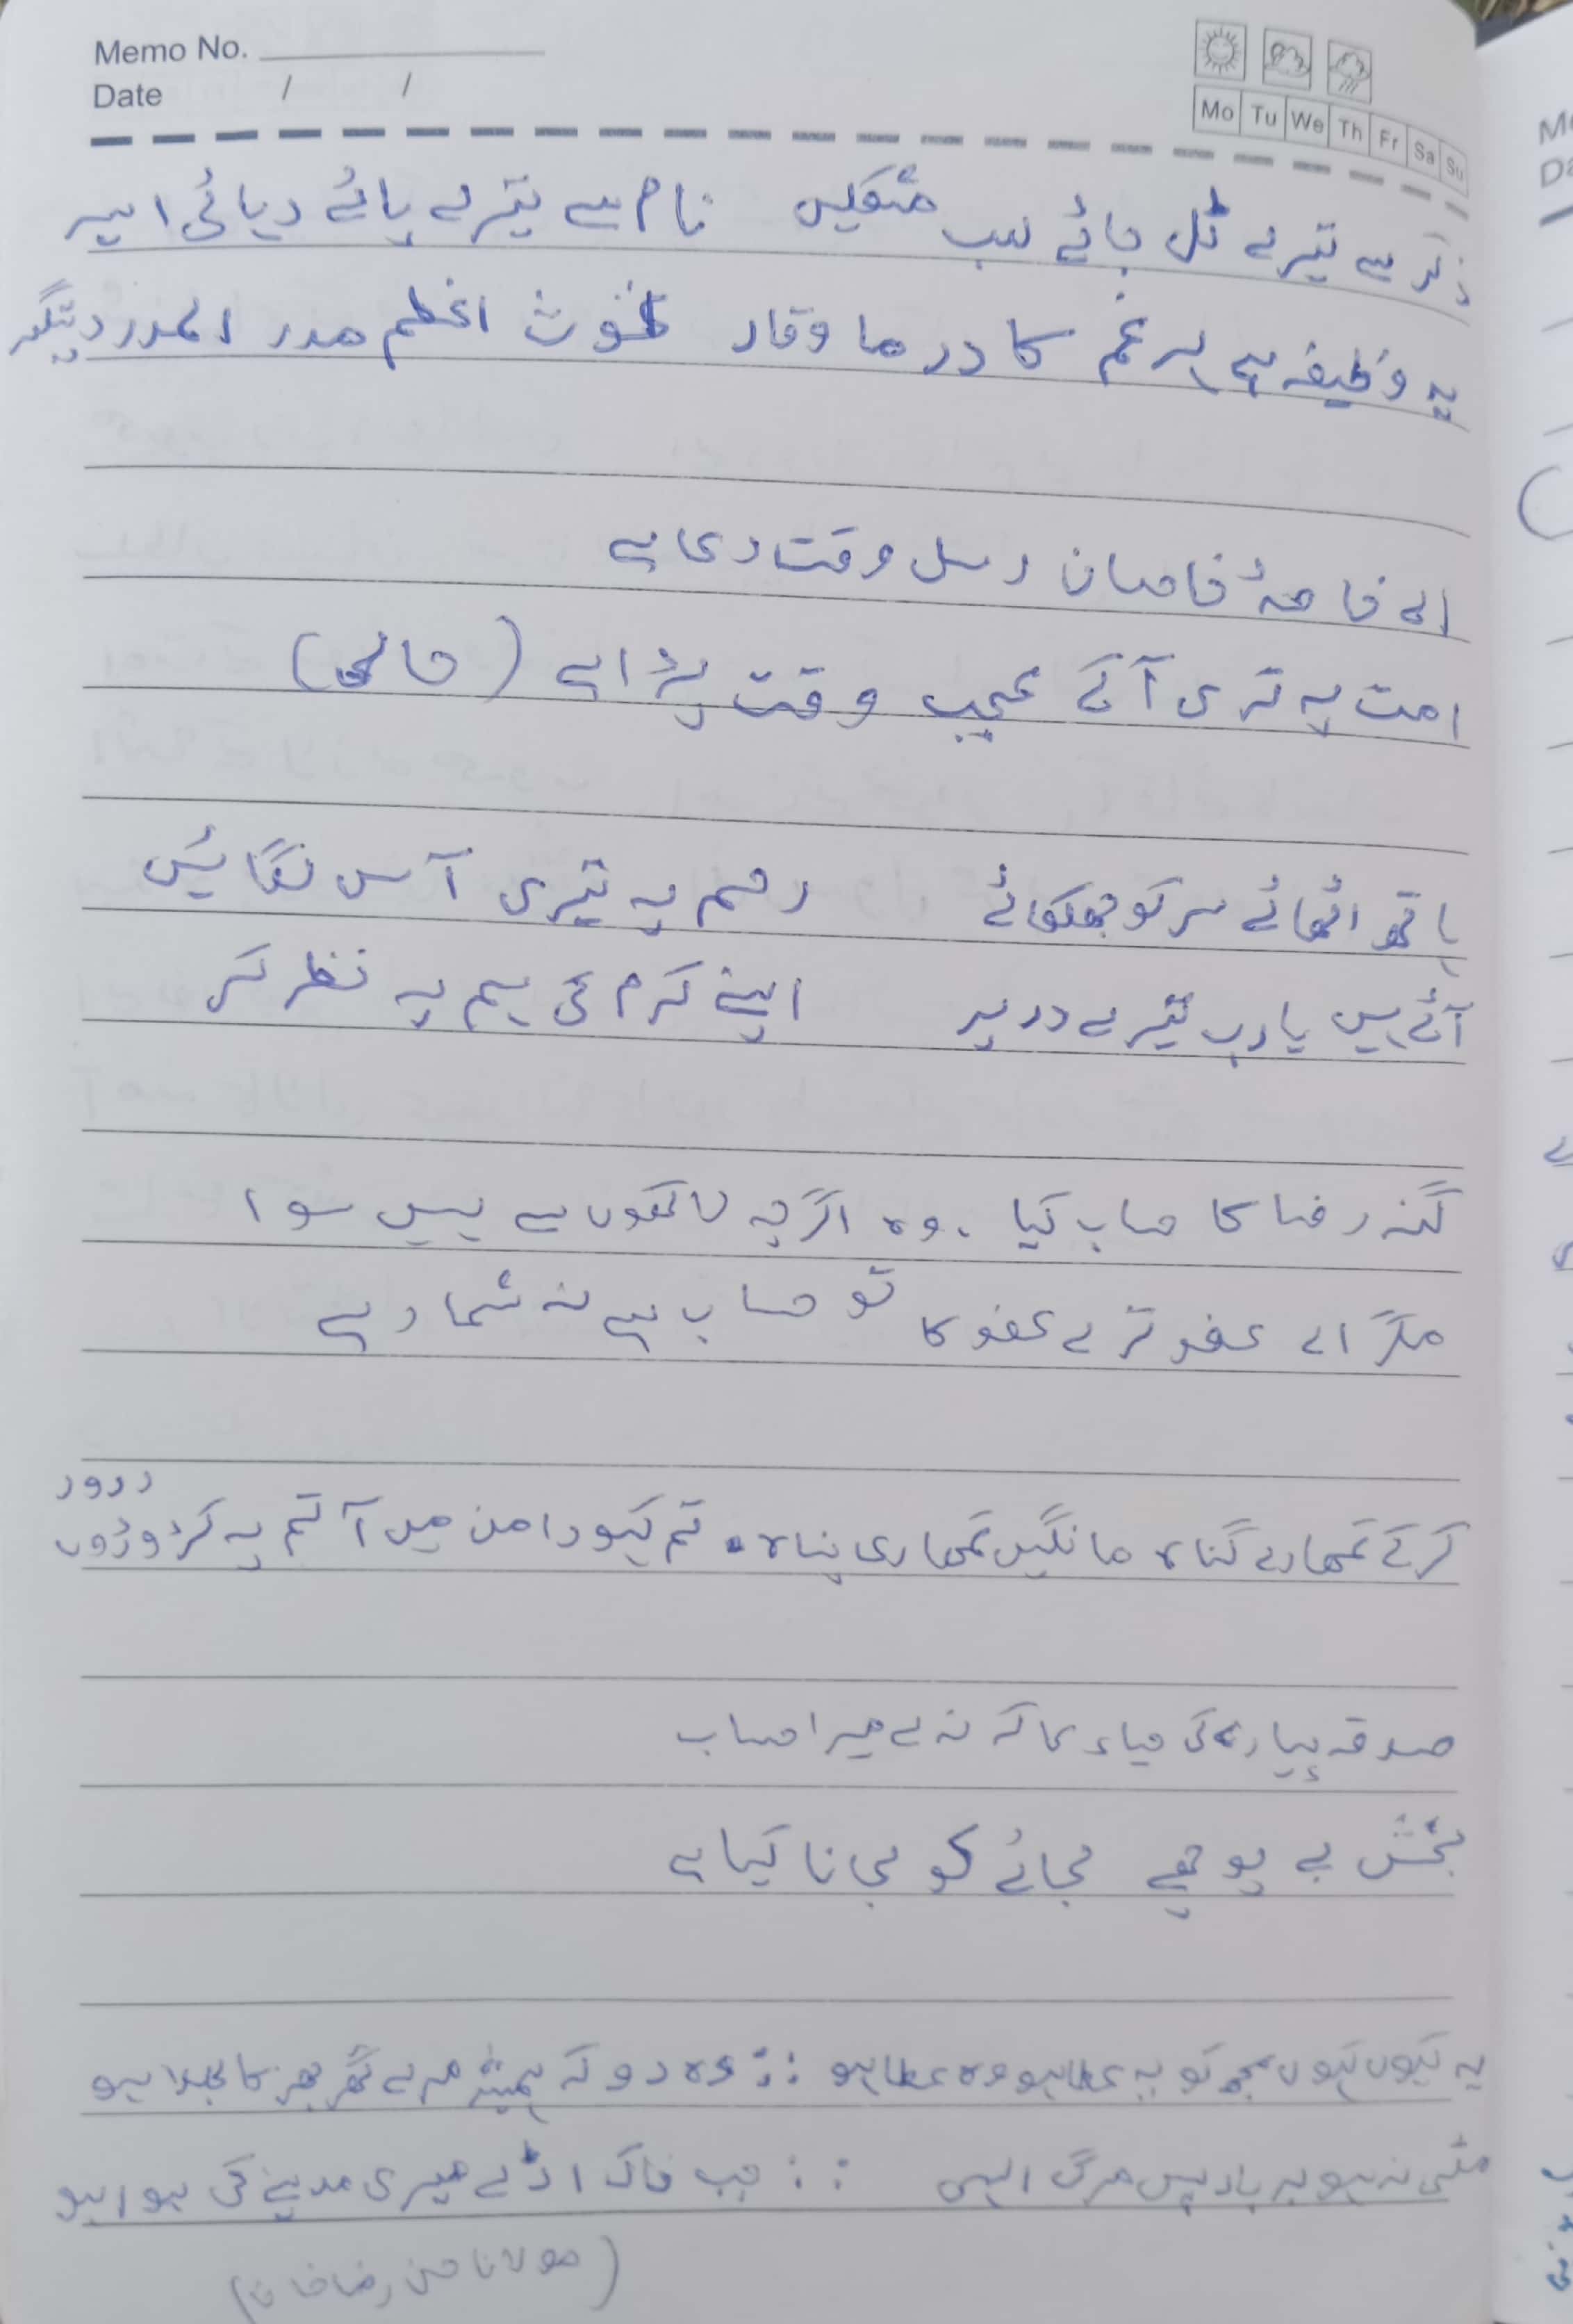 Memo No.
Date / /
Mo Tu We Th Fr Sa Su
ذکر سے تیرے ٹل جائے سب مشکلیں نام سے تیرے پائے رہائی اسیر
یہ وظیفہ ہے ہر غم کا درما وقار غوث اعظم مدد المدد دستگیر
اے خاصۂ خاصان رسل وقت دعا ہے
امت پہ تری آکے عجیب وقت پڑا ہے (حالی)
ہاتھ اٹھائے سر کو جھکائے رحم پہ تیری آس لگائیں
آئے ہیں یارب تیرے در پر اپنے کرم کی ہم پہ نظر کر
گنہ رضا کا حساب کیا، وہ اگرچہ لاکھوں سے ہیں سوا
مگر اے عفو ترے عفو کا تو حساب ہے نہ شمار ہے
کرکے تمھارے گناہ مانگیں تمھاری پناہ، تم کہو دامن میں آ تم پہ کڑوڑوں درود
صدقہ پیارے کی حیاء کا کہ نہ لے میرا حساب
بخش بے پوچھے لجائے کو لجانا کیا ہے
یہ کیوں کہوں مجھ کو یہ عطا ہو وہ عطا ہو :: وہ دو کہ ہمیشہ مرے گھر بھر کا بھلا ہو
مٹی نہ ہو برباد پس مرگ الہی :: جب خاک اڑے میری مدینے کی ہوا ہو
(مولانا حسن رضا خان)